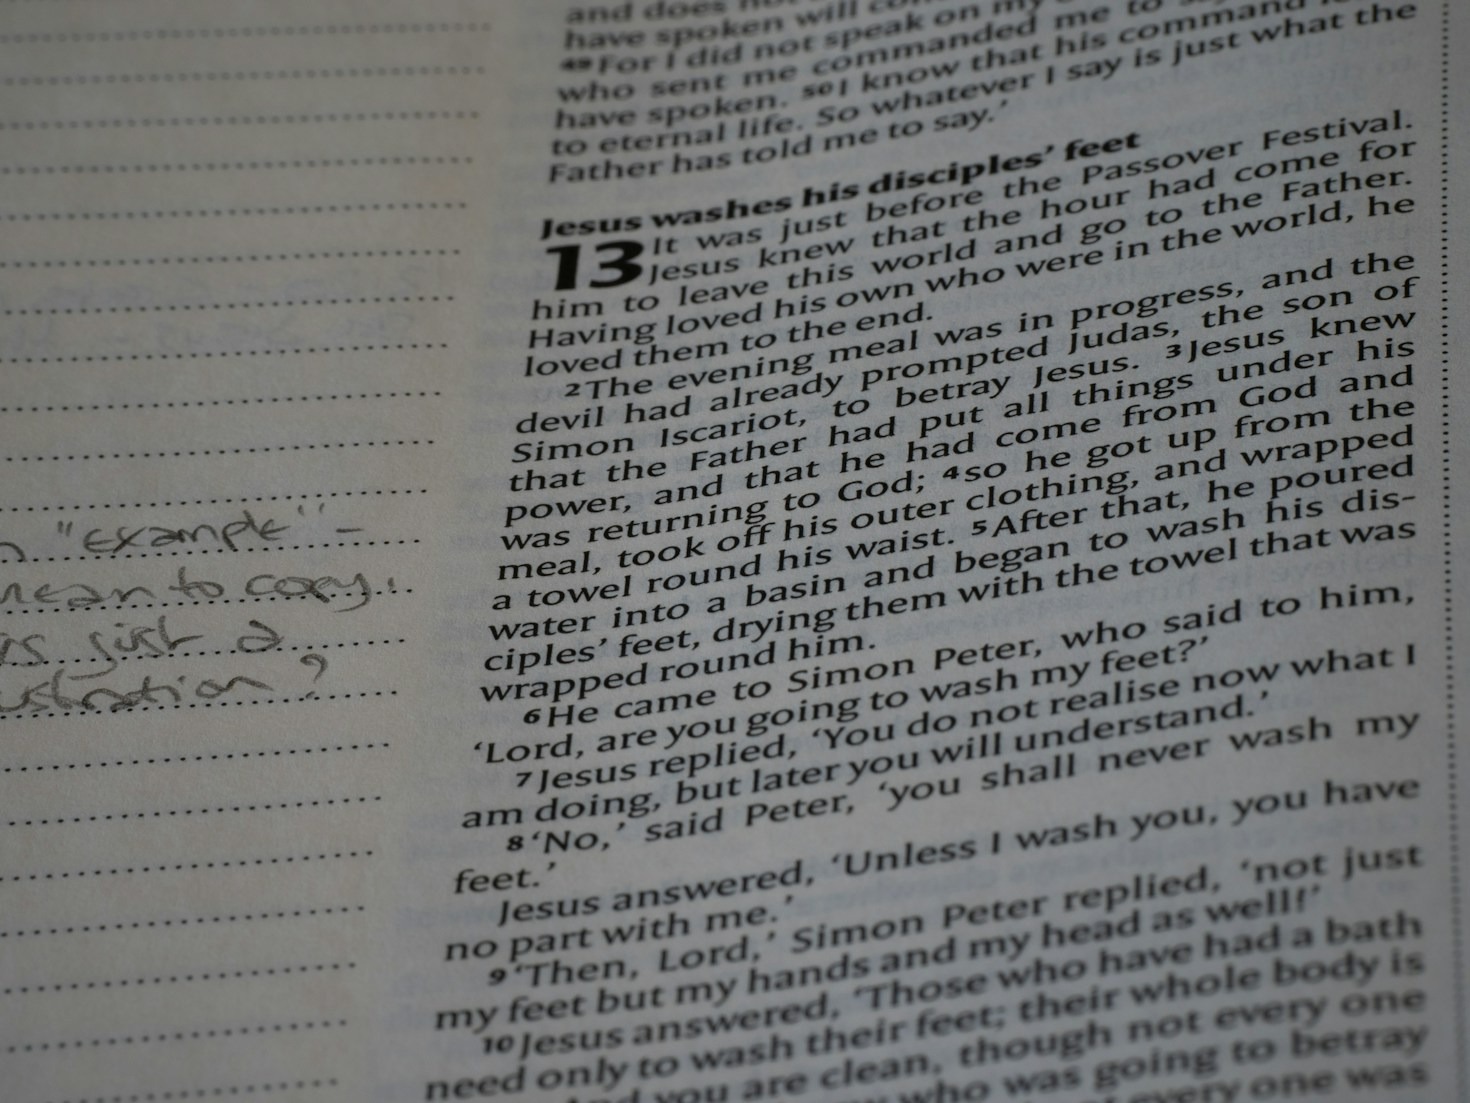 "example" –
mean to copy.
just a
?
and does
have spoken will
49 For I did not speak on my
who sent me commanded me to
have spoken. 50 I know that his command
to eternal life. So whatever I say is just what the
Father has told me to say.'
Jesus washes his disciples' feet
13 It was just before the Passover Festival.
Jesus knew that the hour had come for
him to leave this world and go to the Father.
Having loved his own who were in the world, he
loved them to the end.
2 The evening meal was in progress, and the
devil had already prompted Judas, the son of
Simon Iscariot, to betray Jesus. 3 Jesus knew
that the Father had put all things under his
power, and that he had come from God and
was returning to God; 4 so he got up from the
meal, took off his outer clothing, and wrapped
a towel round his waist. 5 After that, he poured
water into a basin and began to wash his dis-
ciples' feet, drying them with the towel that was
wrapped round him.
6 He came to Simon Peter, who said to him,
'Lord, are you going to wash my feet?'
7 Jesus replied, 'You do not realise now what I
am doing, but later you will understand.'
8 'No,' said Peter, 'you shall never wash my
feet.'
Jesus answered, 'Unless I wash you, you have
no part with me.'
9 'Then, Lord,' Simon Peter replied, 'not just
my feet but my hands and my head as well!'
10 Jesus answered, 'Those who have had a bath
need only to wash their feet; their whole body is
And you are clean, though not every one
who was going to betray
every one was